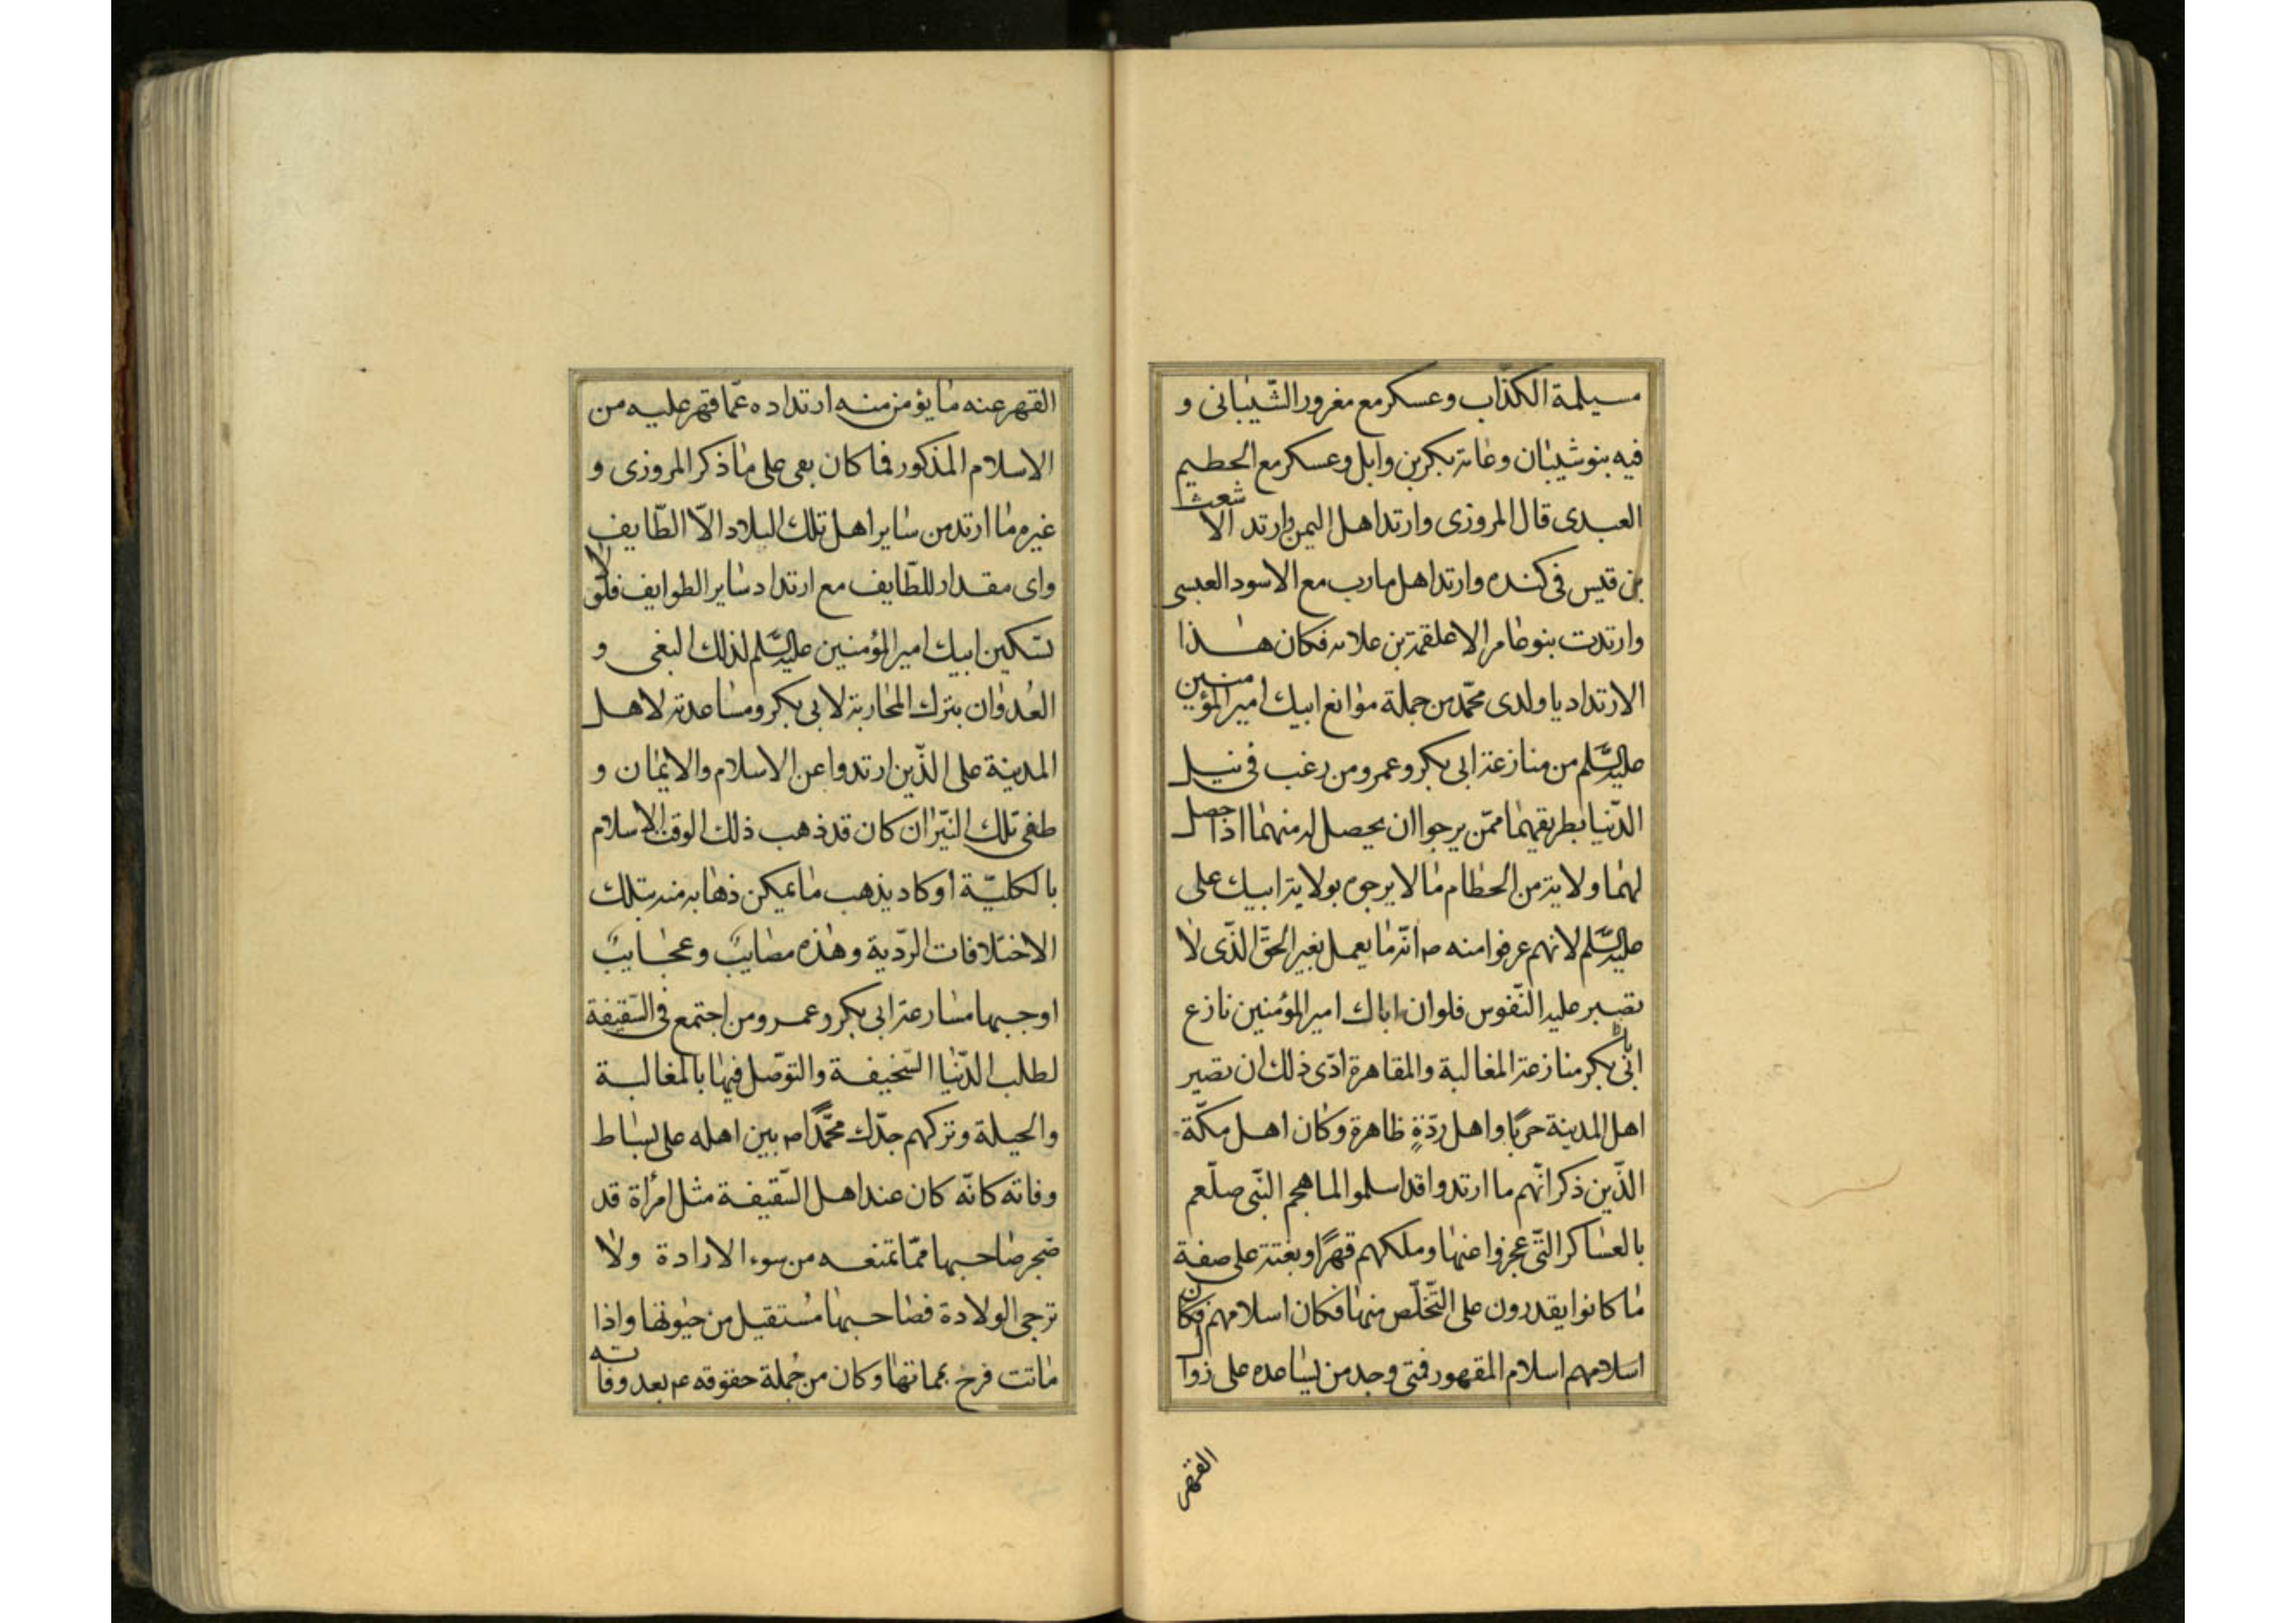 مسيلمة الكذّاب وعسكر مع مغرور الشّيبانى و
فيه بنو شيبان وعامة بكر بن وايل وعسكر مع الحطيم
العبدى قال المروزى وارتد اهل اليمن وارتد الاشعث
بن قيس فى كنده وارتد اهل مارب مع الاسود العبسى
وارتدت بنو عامر الا علقمة بن علاثه فكان هذا
الارتداد يا ولدى محمّد من جملة موانع ابيك امير المؤمنين
عليه السّلم من منازعة ابى بكر وعمر ومن رغب فى نيل
الدّنيا بطريقهما ممّن يرجوا ان يحصل له منهما اذا حصل
لهما ولاية من الحطام ما لا يرجوه بولاية ابيك على
عليه السّلم لانهم عرفوا منه ص انّه ما يعمل بغير الحقّ الذّى لا
تصبر عليه النّفوس فلو ان اباك امير المؤمنين نازع
ابى بكر منازعة المغالبة والمقاهرة ادّى ذلك ان تصير
اهل المدينة حربًا واهل ردّةٍ ظاهرة وكان اهل مكّة
الذّين ذكر انّهم ما ارتدوا قد اسلموا لما هجم النّبى صلّعم
بالعساكر التّى عجزوا عنها وملكهم قهرًا وبغتة على صفة
ما كانوا يقدرون على التّخلّص منها فكان اسلامهم فكان
اسلامهم اسلام المقهور فمتى وجد من يساعده على زوال
القهر
القهر عنه ما يؤمن منه ارتداده عمّا قهر عليه من
الاسلام المذكور فما كان بقى على ما ذكر المروزى و
غيره ما ارتد من ساير اهل تلك البلاد الاّ الطّايف
واى مقدار للطّايف مع ارتداد ساير الطوايف فلولا
تسكين ابيك امير المؤمنين عليه السّلم لذلك البغى و
العُدوان بترك المحاربة لابى بكر ومساعدته لاهل
المدينة على الذّين ارتدوا عن الاسلام والايمان و
طفى تلك النيّران كان قد ذهب ذلك الوقت الاسلام
بالكليّة او كاد يذهب ما يمكن ذهابه منه بتلك
الاختلافات الردّية وهذه مصايبٌ وعجايبٌ
اوجبها مسارعة ابى بكر وعمر ومن اجتمع فى السّقيفة
لطلب الدّنيا السّخيفة والتوصّل فيها بالمغالبة
والحيلة وتركهم جدّك محمّدًا ص بين اهله على بساط
وفاته كانّه كان عند اهل السّقيفة مثل امرأة قد
ضجر صاحبها ممّا تمنعه من سوء الارادة ولا
ترجى الولادة فصاحبها مُستقيل من حيوتها واذا
ماتت فرح بمماتها وكان من جُملة حقوقه عم بعد وفاته